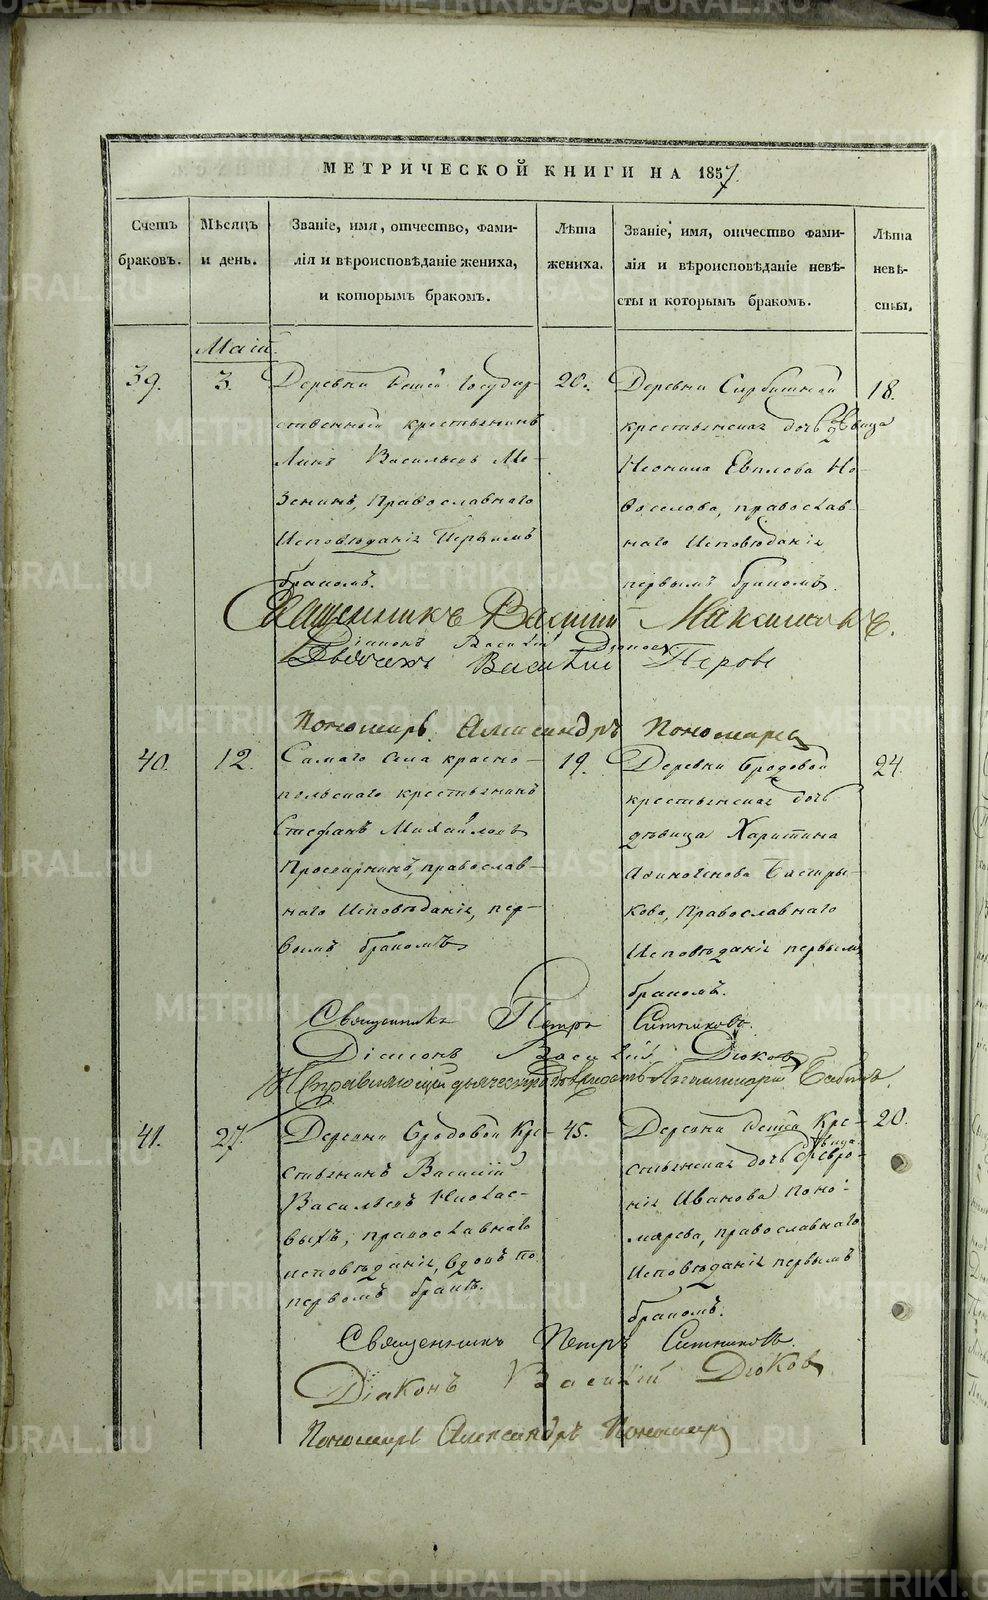 МЕТРИЧЕСКОЙ КНИГИ НА 1857.
Счетъ браковъ.
Мѣсяцъ и день.
Званіе, имя, отчество, фами-
лія и вѣроисповѣданіе жениха,
и которымъ бракомъ.
Лѣта
жениха.
Званіе, имя, отчество фами-
лія и вѣроисповѣданіе невѣ-
сты и которымъ бракомъ.
Лѣта
невѣ-
сты.
Маій.
39.
3.
Деревни государ-
ственный крестьянинъ
Васильевъ Ме-
зенинъ, Православнаго
Исповѣданія Первымъ
бракомъ.
20.
Деревни
крестьянская дочь дѣвица
Неонила Евплова Но-
воселова, православ-
наго Исповѣданія,
первымъ бракомъ.
18.
Священникъ Василій Максимовъ.
Діаконъ Василій Дюковъ
Василій Перовъ
Пономарь Александръ Пономаревъ
40.
12.
Самаго села красно-
польскаго крестьянинъ
Стефанъ Михайловъ
Просвирнинъ, православ-
наго Исповѣданія, пер-
вымъ бракомъ
19.
Деревни Бродовой
крестьянская дочь
дѣвица Харитина
Афиногенова Бастры-
кова, Православнаго
Исповѣданія первымъ
бракомъ.
24.
Священникъ Петръ Ситниковъ.
Діаконъ Василій Дюковъ
Исправляющій должность Бабинъ.
41.
27.
Деревни Бродовой Кре-
стьянинъ Василій
Васильевъ
выхъ, православнаго
исповѣданія, вдовъ по
первомъ бракѣ.
45.
Деревни Кре-
стьянская дочь дѣвица Февро-
нія Иванова Поно-
марева, православнаго
Исповѣданія первымъ
бракомъ.
20.
Священникъ Петръ Ситниковъ.
Діаконъ Василій Дюковъ
Пономарь Александръ Пономаревъ
METRIKI.GASO-URAL.RU